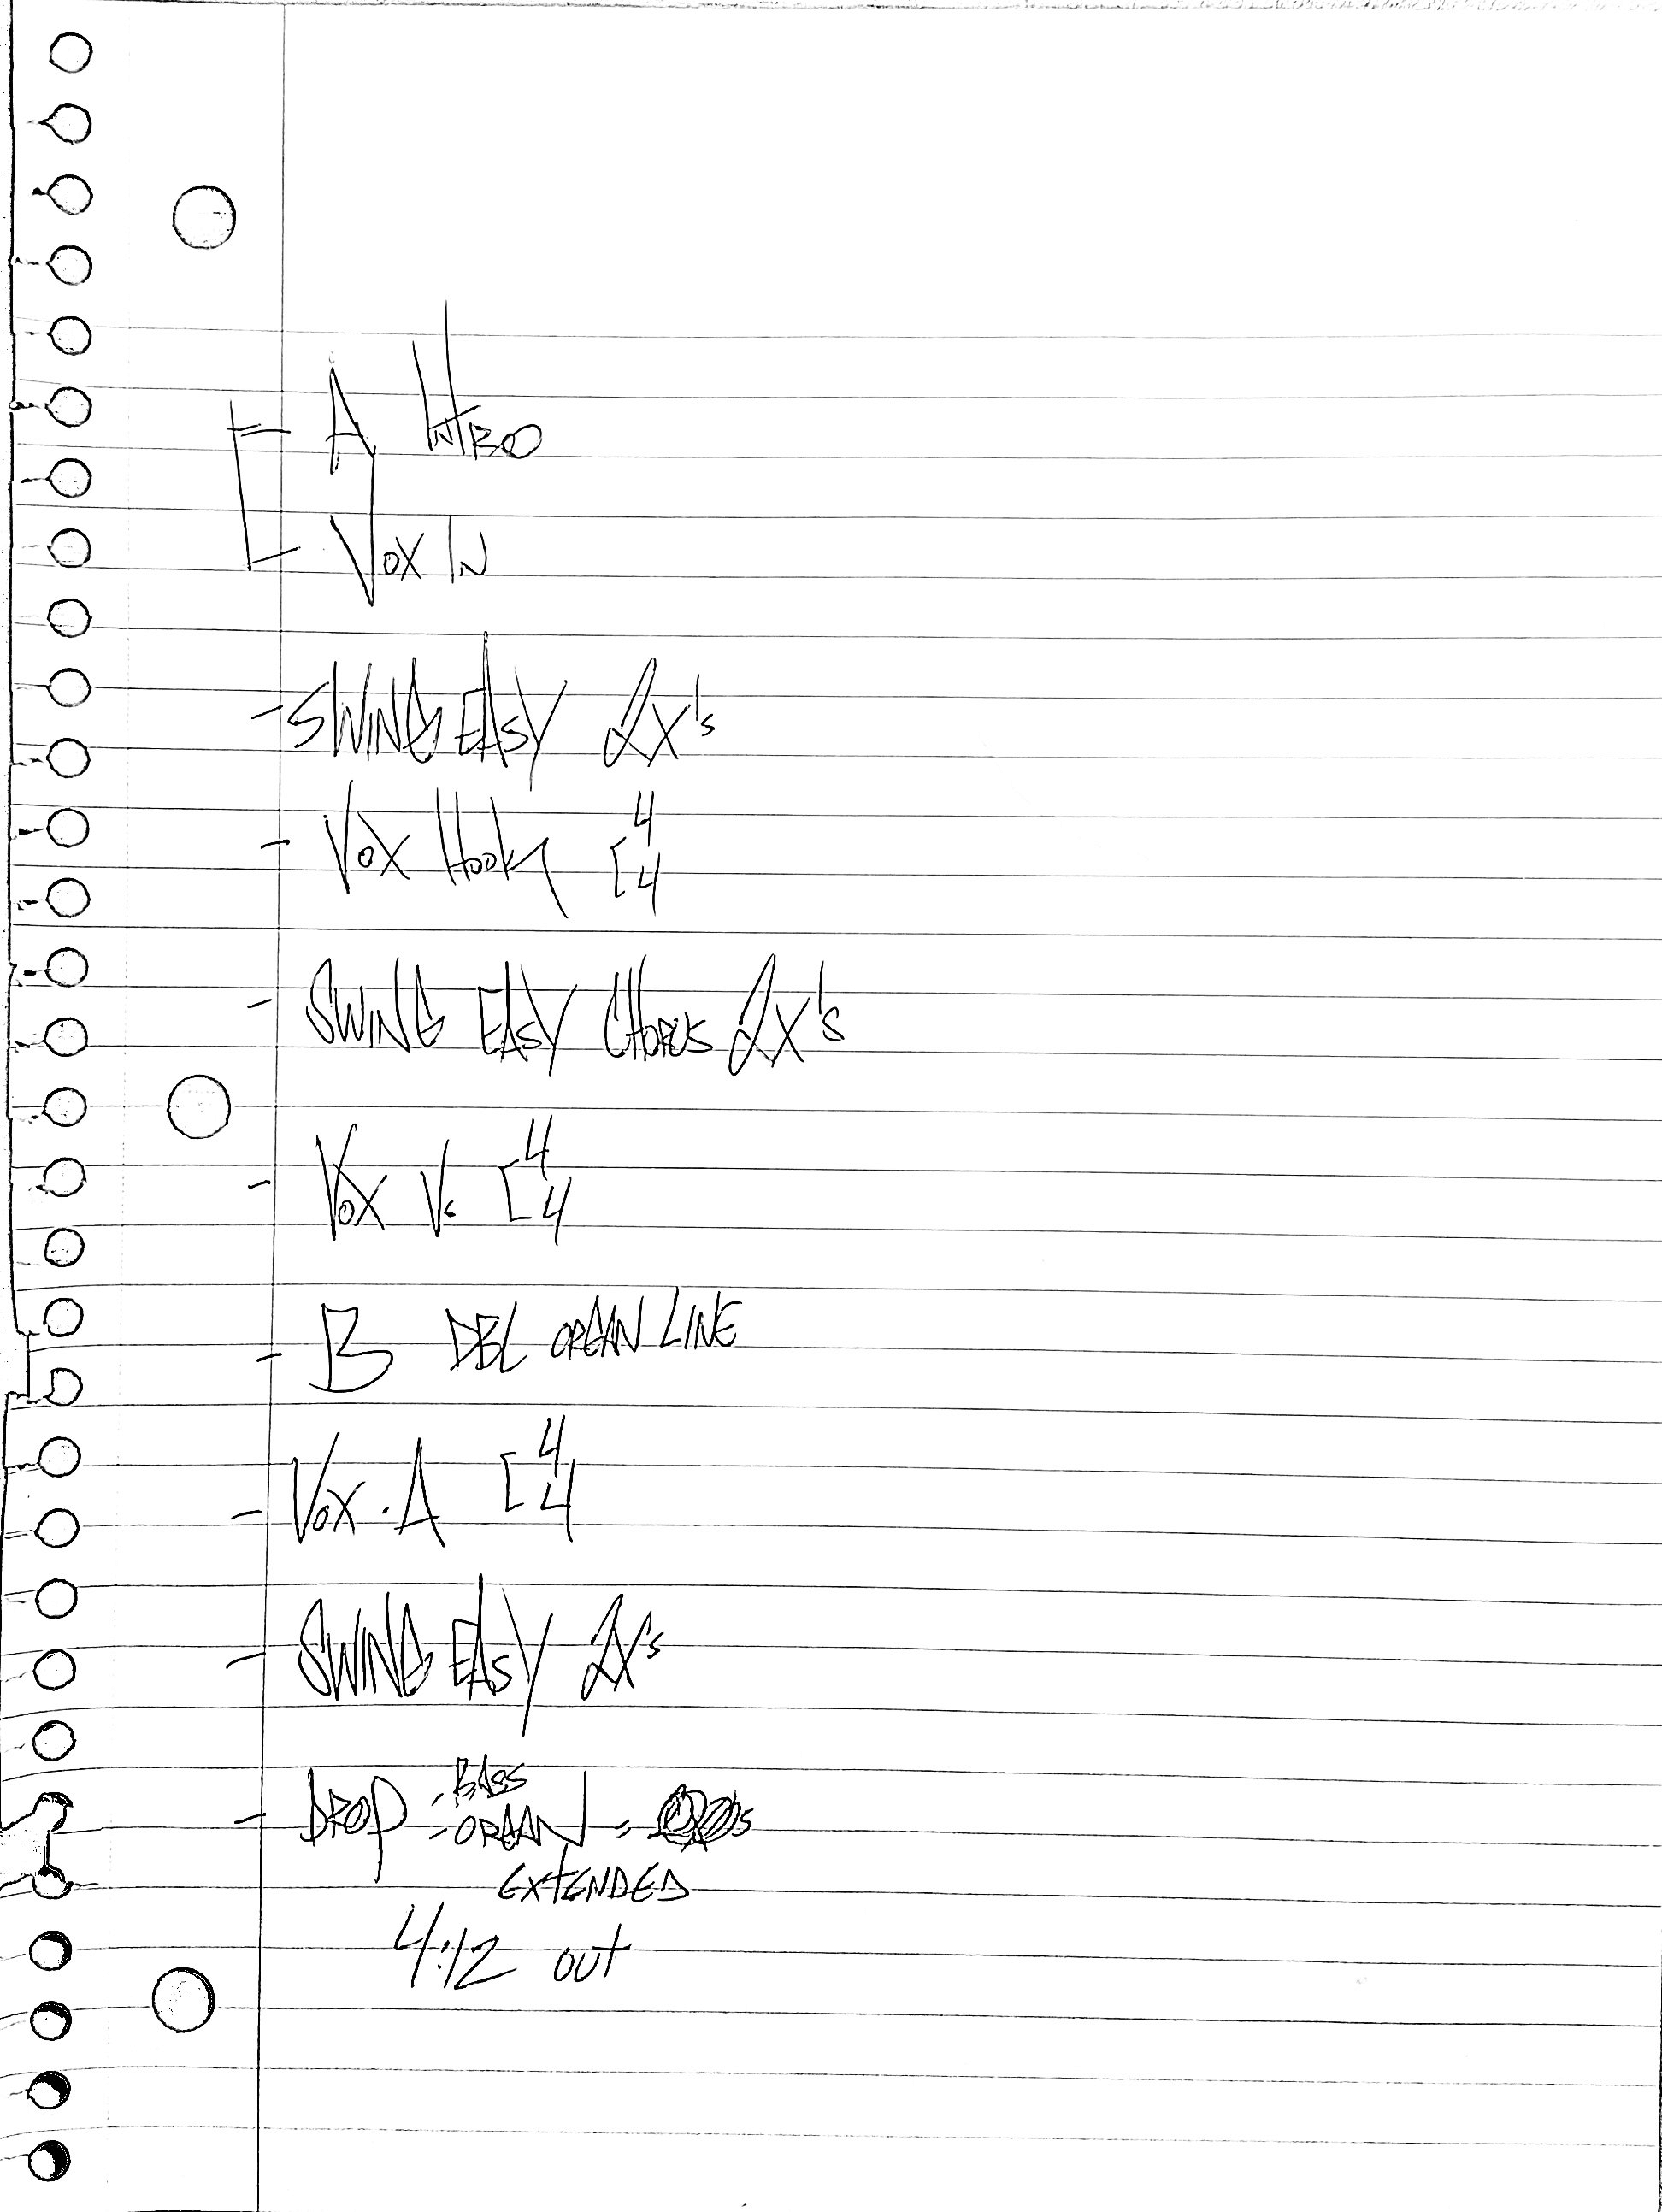 - A INTRO
- VOX IN
- SWING EASY 2X's
- VOX HOOK [4
[4
- SWING EASY CHORUS 2X's
- VOX V. [4
[4
- B DBL ORGAN LINE
- VOX · A [4
[4
- SWING EASY 2X's
- DROP - BASS
- ORGAN -
EXTENDED
4:12 OUT